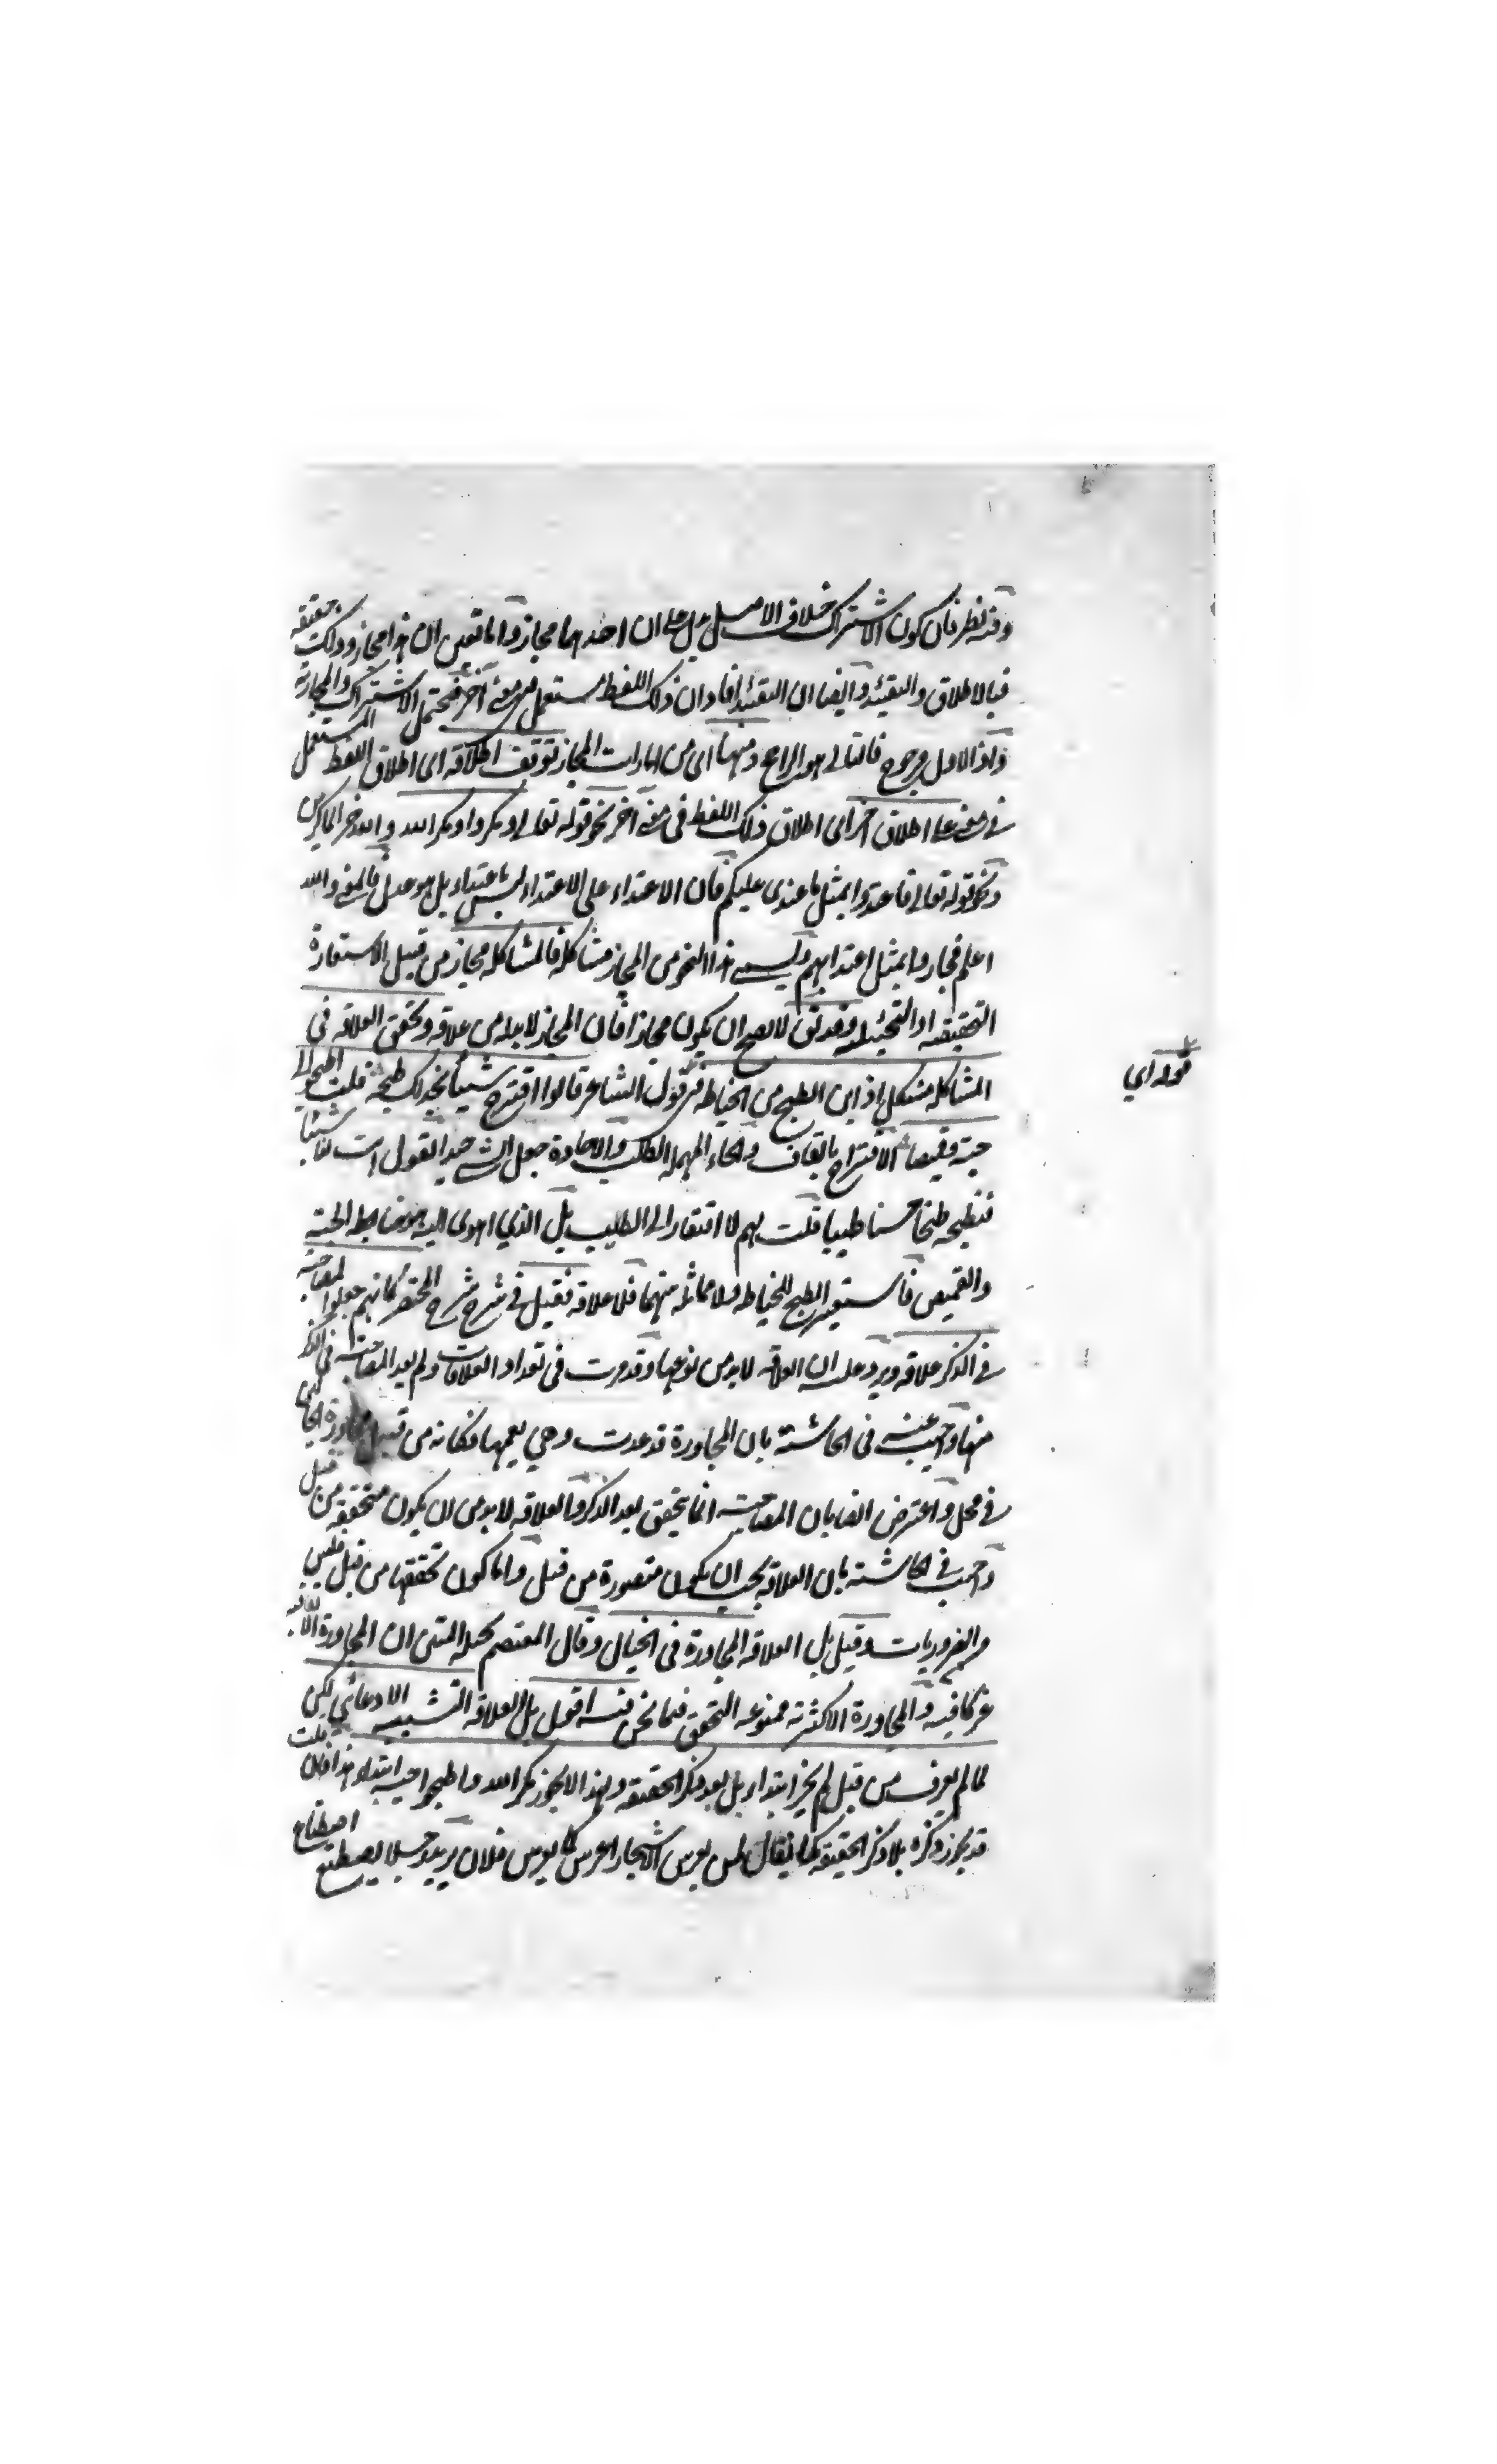 وفيه نظر فان كون الاشتراك خلاف الاصل يدل على ان احدهما مجاز واما تعين ان هذا مجاز وذلك حقيقة
فبالاطلاق والتقييد وايضا ان التقييد افاد ان ذلك اللفظ مستعمل في معنى آخر فيحتمل الاشتراك والمجازية
واذ الاول مرجوح فالثاني هو الراجح ومنها اى من امارات المجاز توقف اطلاقه اى اطلاق اللفظ المستعمل
في معنى على اطلاق آخر اى اطلاق ذلك اللفظ في معنى آخر نحو قوله تعالى ومكروا ومكر الله والله خير الماكرين
ونحو قوله تعالى فاعتدوا بمثل ما اعتدى عليكم فان الاعتداء على الاعتداء ليس باعتداء بل هو عدل فالمعنى والله
اعلم فجازوا بمثل اعتدائهم ويسمى هذا النحو من المجاز مشاكلة فالمشاكلة مجاز من قبيل الاستعارة
التحقيقية او التخييلية وقد لا يصح ان يكون مجازا فان المجاز لابد له من علاقة وتحقق العلاقة في
المشاكلة مشكل اذ اين الطبخ من الخياطة في قول الشاعر قالوا اقترح شيئا نجد لك طبخه قلت اطبخوا لي
جبة وقميصا الاقتراح بالقاف والحاء المهملة الطلب والاجادة جعل الشيء جيدا يقول اطلب منا شيئا
فنطبخه طبخا حسنا طيبا قلت لهم لا افتقار الى الطبيب بل الذي اهوى اليه هو خياطة الجبة
والقميص فاستعير الطبخ للخياطة ولا مماثلة بينهما فلا علاقة فقيل في شرح شرح المختصر كانهم جعلوا المصاحبة
في الذكر علاقة ويرد عليه ان العلاقة لابد من نوعها وقد مرت في تعداد العلاقات ولم يعد المصاحبة في الذكر
منها واجيب عنه في الحاشية بان المجاورة قد عدت وهي يعمها فكانه من قبيل مجاورة الحالين
في محل واعترض ايضا بان المصاحبة انما يتحقق بعد الذكر والعلاقة لابد من ان يكون متحققة من قبل
واجيب في الحاشية بان العلاقة يجب ان يكون متصورة من قبل واما كون تحققها من قبل فليس
من الضروريات وقيل بل العلاقة المجاورة في الخيال وقال المعتصم بحبله المتين ان المجاورة الاتفاقية
غير كافية والمجاورة الاكثرية ممنوعة التحقق فيما نحن فيه اقول بل العلاقة التشبيه الادعائي لكن
لما لم يعرف من قبل لم يجز ابتداء بل بعد ذكر الحقيقة ولهذا لا يجوز مكر الله واطبخوا جبة ابتداء هذا فان قلت
قد يجوز ذكره بلا ذكر الحقيقة كما يقال لمن يغرس الاشجار اغرس كما يغرس فلان يريد رجلا يصطنع اصطناع
قوله اي